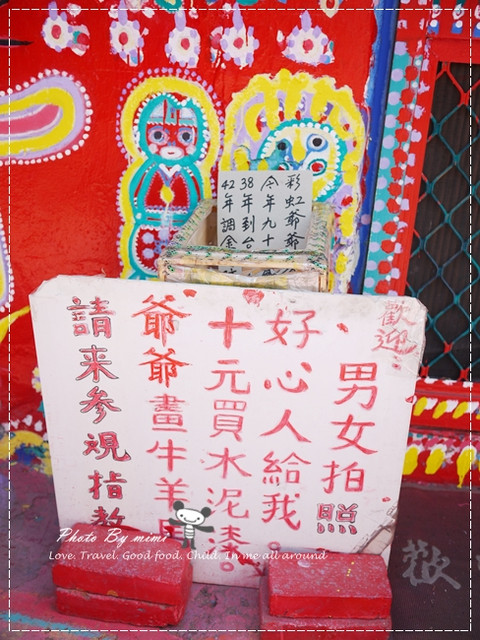 彩虹爺爺
今年九十
38年到台
42年調金
歡迎
男女拍照
好心人給我。
十元買水泥漆。
爺爺畫牛羊馬
請来参观指教
歡
Photo By mimi
Love. Travel. Good food. Child. In me all around